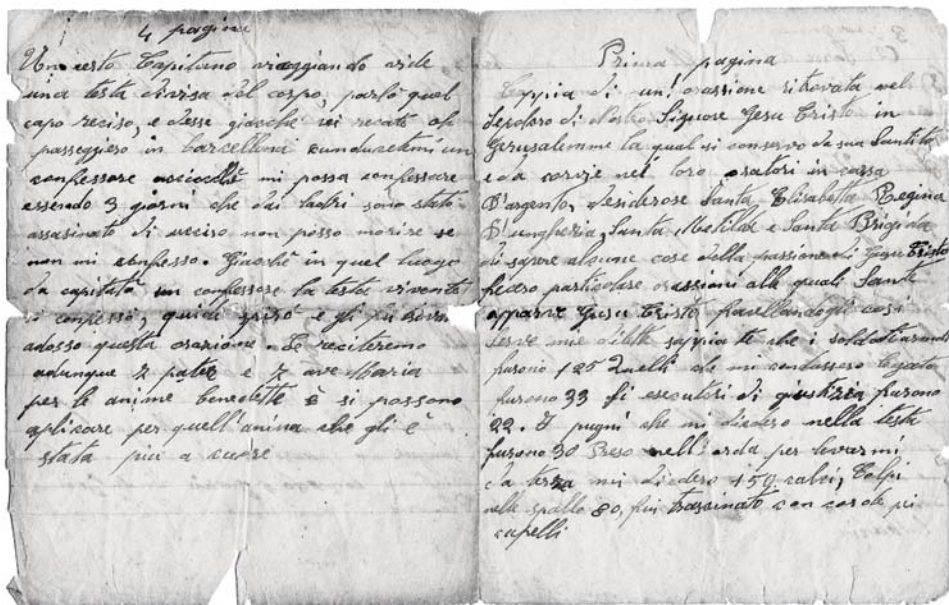 4 pagina
Un certo Capitano viaggiando vide
una testa divisa del corpo, parlò quel
capo reciso, e disse giacchè vi recate o
passeggiero in barcellona cunducetemi un
confessore acciocchè mi possa confessare
essendo 3 giorni che dai ladri sono stato
assasinato di ucciso non posso morire se
non mi confesso. Giacchè in quel luogo
da capitato un confessore la testa vivente
si confessò, quindi spirò e gli fu
adosso questa orazione. Se reciteremo
adunque 7 pater e 7 ave Maria
per le anime benedette e si possono
aplicare per quell'anima che gli è
stata piu a cuore
Prima pagina
Coppia di un' orassione ritrovata nel
sepolcro di Nostro Signore Gesu Cristo in
Gerusalemme la qual si conserva da sua Santità
e da nei loro oratori in cassa
D'argento, desiderose Santa Elisabetta Regina
D'ungheria, Santa Metilde e Santa Brigida
di sapere alcune cose della passione di Gesu Cristo
fecero particolare orassioni alle quali Santi
apparve Gesu Cristo favellandogli cosi
Serve mie dilette sappiate che i soldati armati
furono 125 Quelli che mi condussero legato
furono 33 li esecutori di giustizia furono
22. I pugni che mi diedero nella testa
furono 30 Preso nell' orda per levarmi
da terza mi diedero 150 calci, Colpi
nelle spalle 80, fui trascinato con corde pei
capelli